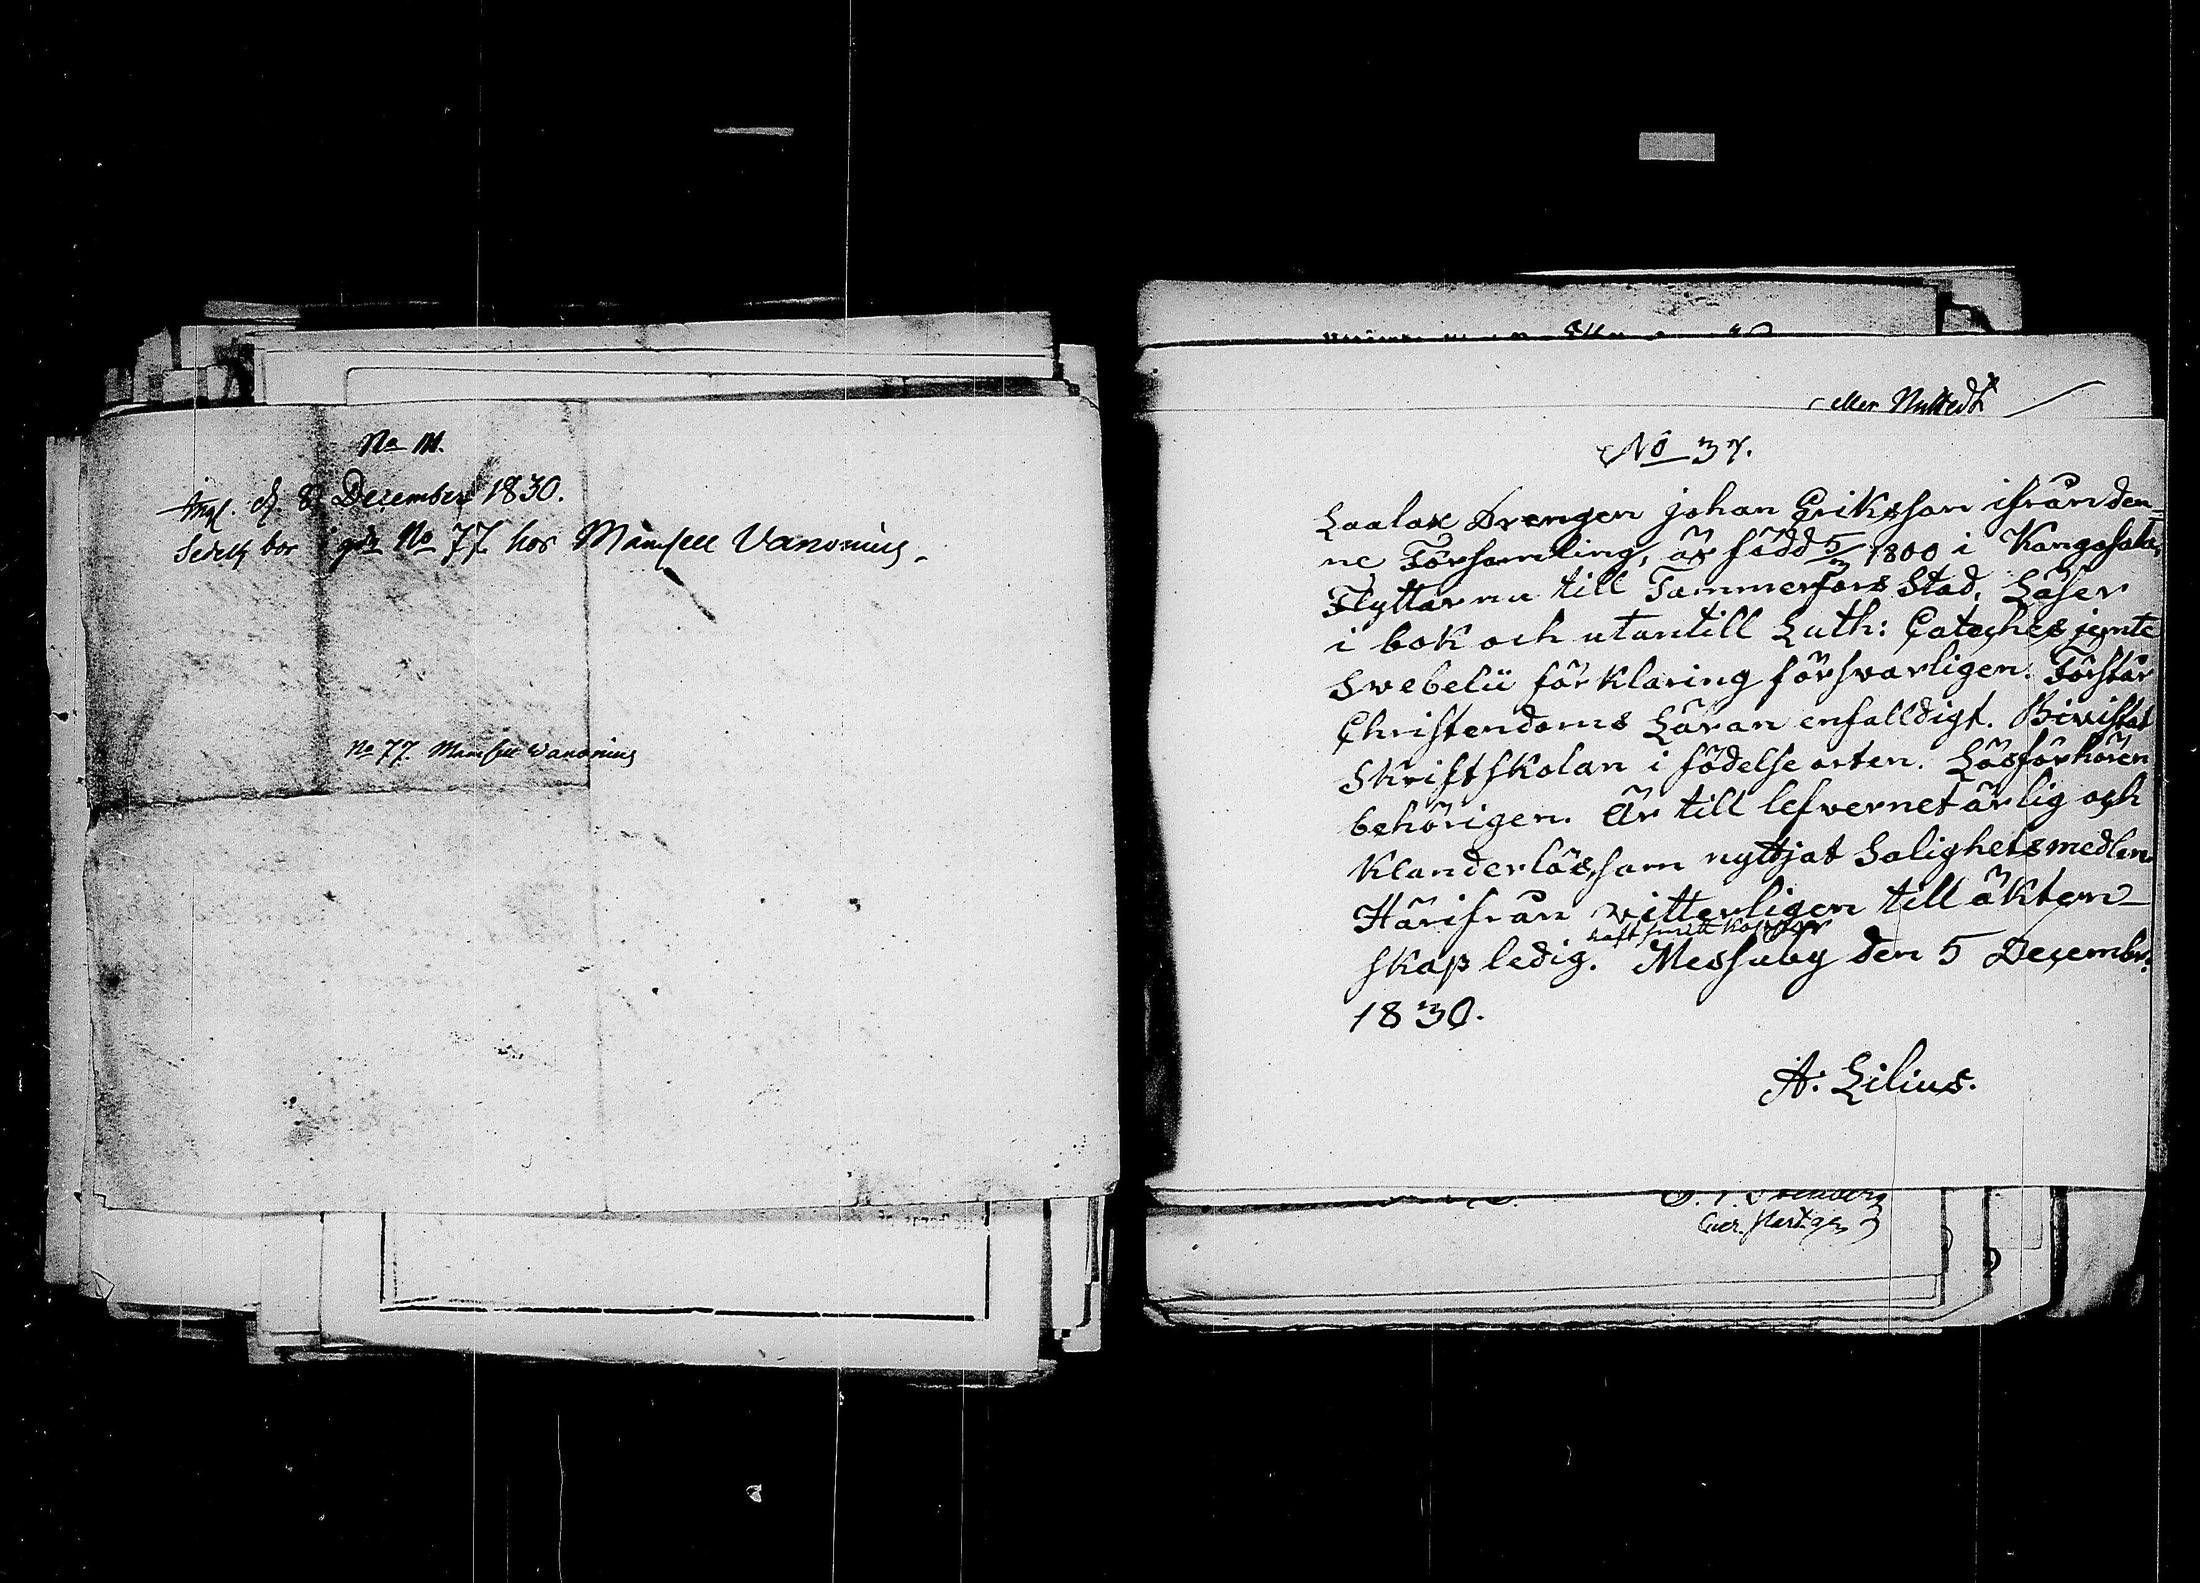 No 111.
Ingl. d. 8 December 1830.
Sedeln bor i gdn No 77 hos Mamsell Vanonius.
No 77. Mamsell Wanonius
eller
No 37.
Laalax Drengen Johan Eriksson ifrån den-
ne Församling, är född 5/3 1800 i Kangasala,
Flyttar nu till Tammerfors Stad, Läser
i bok och utantill Luth: Cateches jemte
Svebelii förklaring försvarligen. Förstår
Christendoms Läran enfalldigt. Bivistat
Skriftskolan i födelse orten. Läsförhören
behörigen. Är till lefvernet ärlig och
klanderlös, som nyttjat Salighetsmedlen.
Härifrån vitterligen till äkten-
haft smitt koppor
skap ledig. Messuby den 5 Decembr.
1830.
A: Lilius.